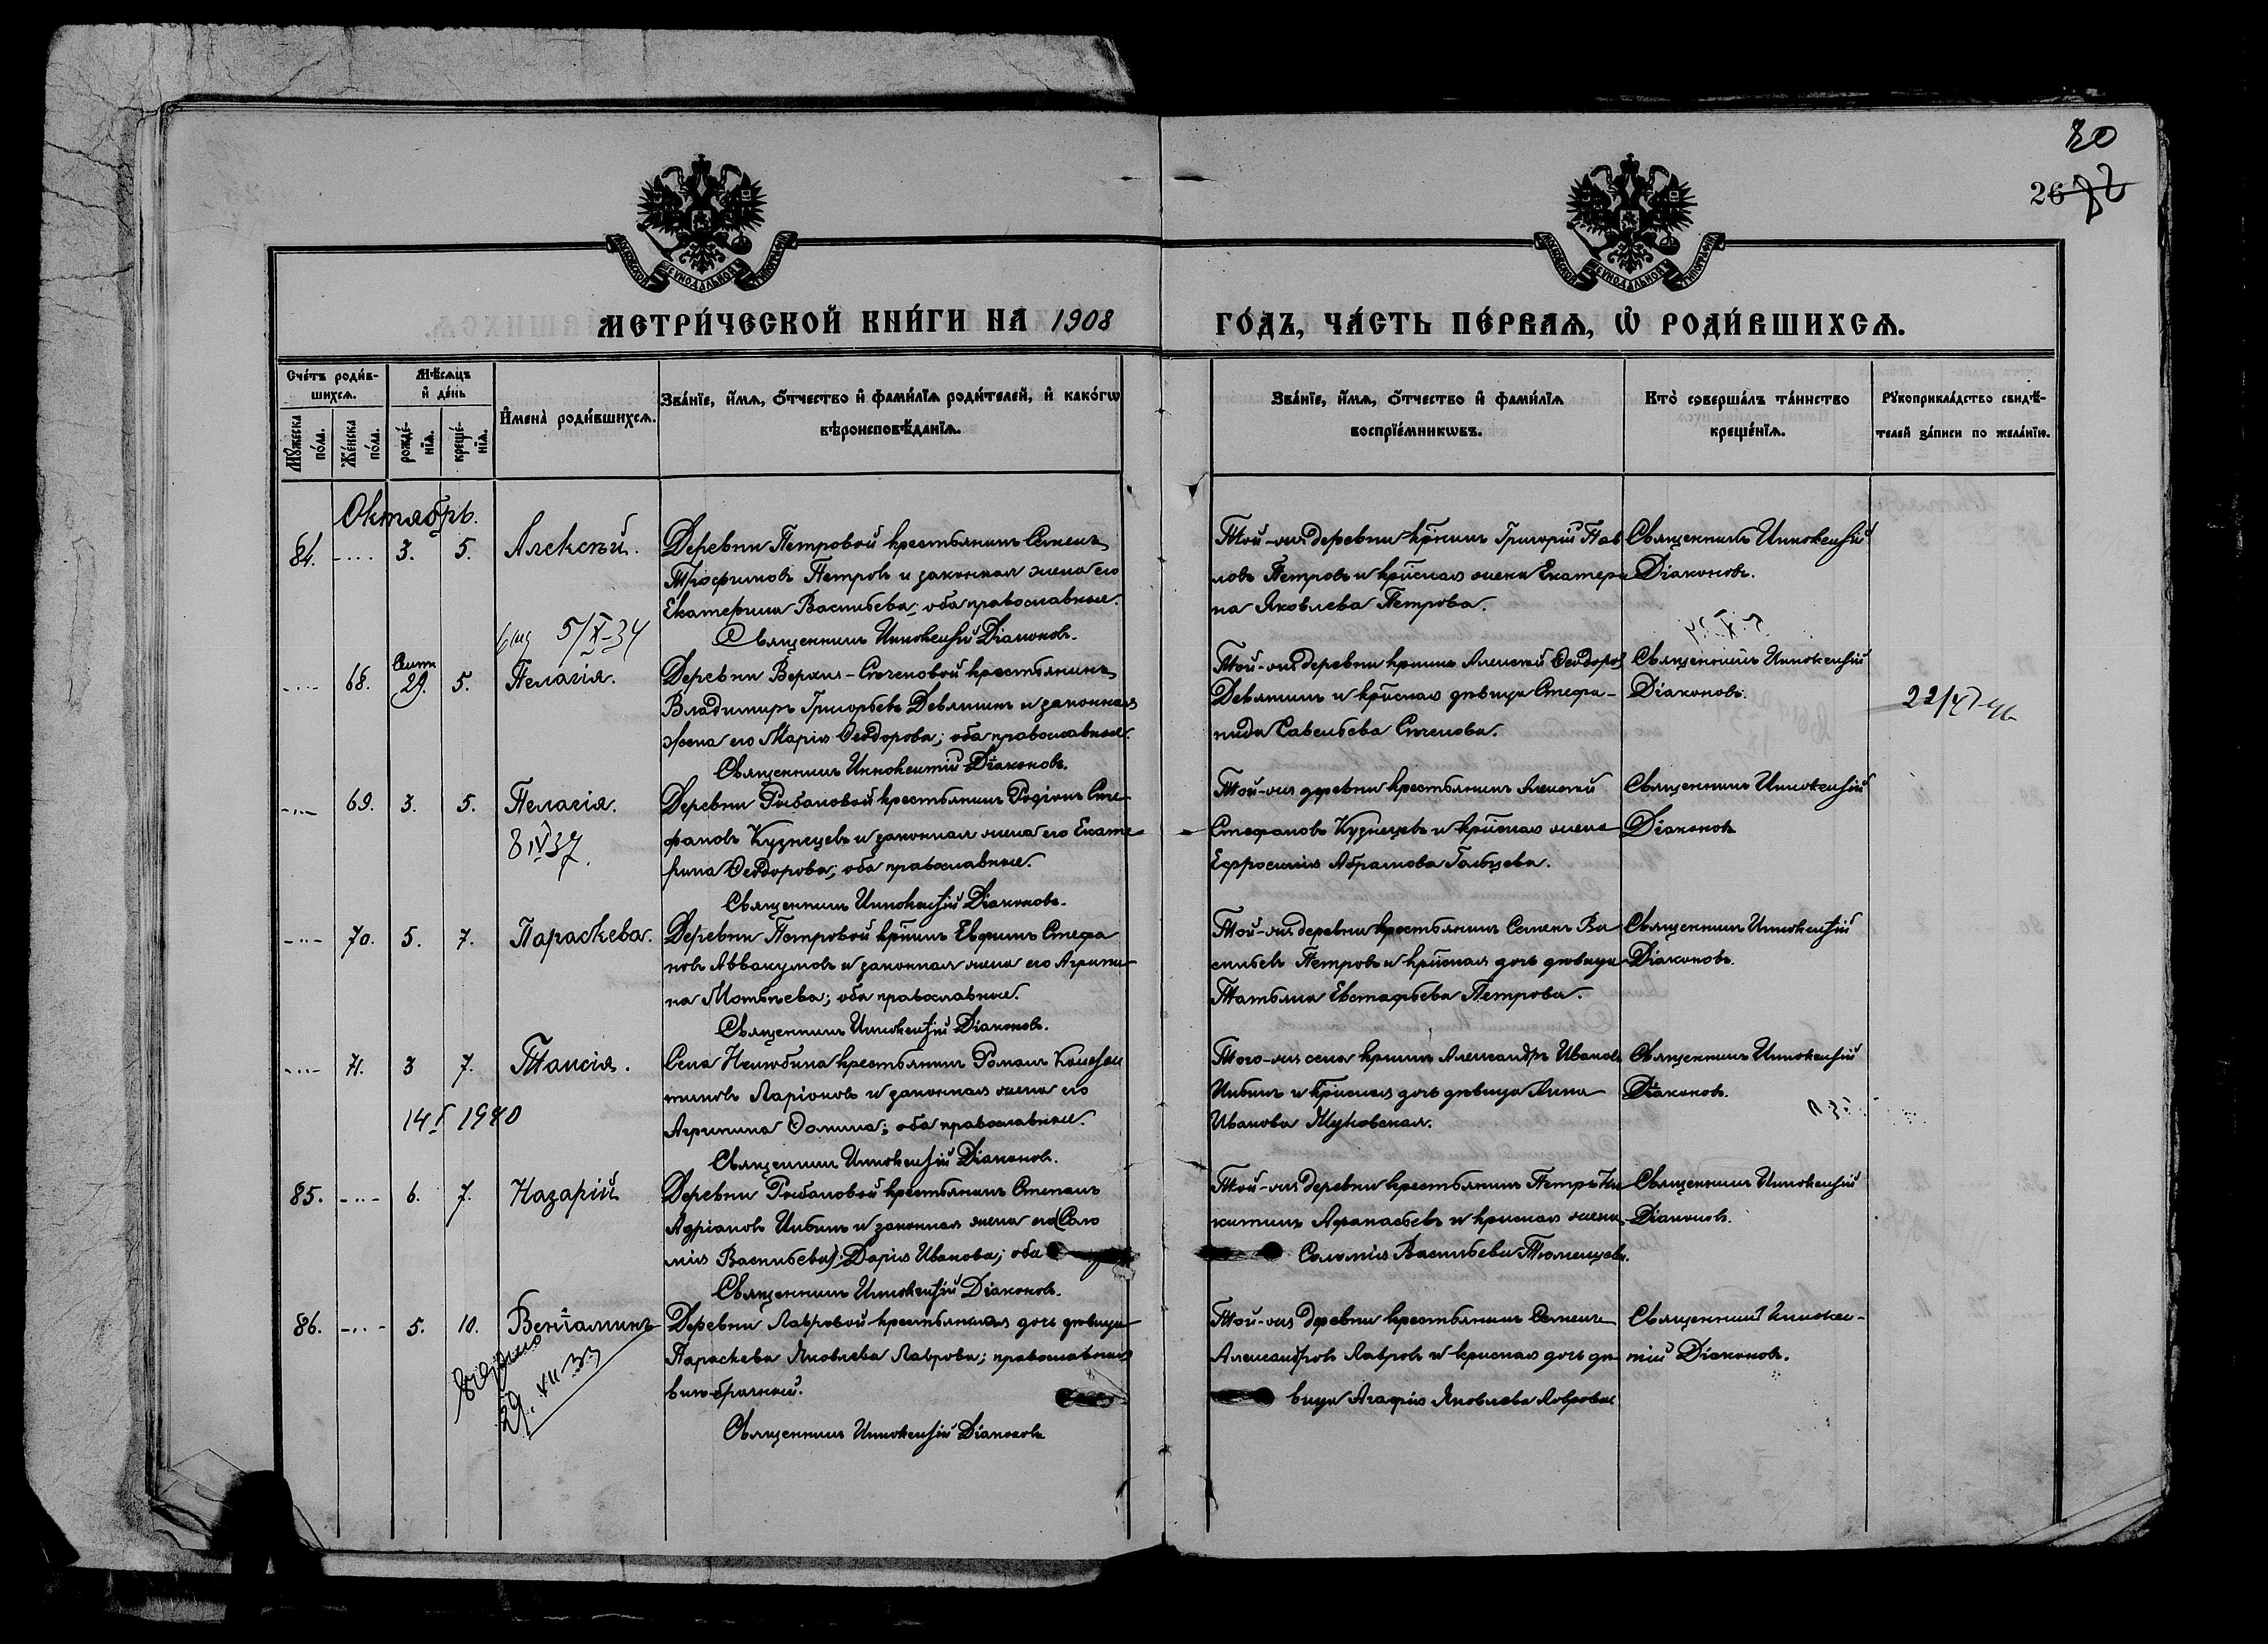 80
26 72
МОСКОВСКОЙ СѴНОДАЛЬНОЙ ТИПОГРАФІИ
МОСКОВСКОЙ СѴНОДАЛЬНОЙ ТИПОГРАФІИ
МЕТРИ́ЧЕСКОЙ КНИ́ГИ НА 1908
ГО́ДЪ, ЧА́СТЬ ПЕ́РВАѦ, Ѡ РОДИ́ВШИХСѦ.
Сче́тъ роди́в-
шихсѧ.
Мѣ́сѧцъ
и҆ де́нь
Мꙋ́жеска
по́ла.
Же́нска
по́ла.
рожде́-
нїѧ.
креще́-
нїѧ.
И҆мена̀ роди́вшихсѧ.
Зва́нїе, и҆́мѧ, ѻ҆́тчество и҆ фами́лїѧ роди́телей, и҆ како́гѡ
вѣроисповѣ́данїѧ.
Зва́нїе, и҆́мѧ, ѻ҆́тчество и҆ фами́лїѧ
воспрїе́мникѡвъ.
Кто̀ соверша́лъ та́инство
креще́нїѧ.
Рꙋкоприкла́дство свидѣ́-
телей за́писи по жела́нїю.
Октябрь.
84. -... 3. 5. Алексѣй.
Деревни Петровой крестьянинъ Семенъ
Трофимовъ Петровъ и законная жена его
Екатерина Васильева; оба православные.
Священникъ Иннокентій Діаконовъ.
Той-же деревни кр̃нинъ Григорій Пав
ловъ Петровъ и кр̃нская жена Екатери
на Яковлева Петрова.
Священникъ Иннокентій
Діаконовъ.
5/X-34
-... 68. Сент. 29. 5. Пелагія.
Деревни Верхне-Сѣченовой крестьянинъ
Владимиръ Григорьевъ Девяшинъ и законная
жена его Марія Ѳеодорова; оба православные.
Священникъ Иннокентій Діаконовъ.
Той-же деревни кр̃нинъ Алексѣй Ѳеодоров
Девяшинъ и кр̃нская дѣвица Стефа-
нида Савельева Сѣченова.
Священникъ Иннокентій
Діаконовъ.
-... 69. 3. 5. Пелагія.
8 IV 37.
Деревни Рыбаловой крестьянинъ Родіонъ Сте-
фановъ Кузнецевъ и законная жена его Екате-
рина Ѳеодорова; оба православные.
Священникъ Иннокентій Діаконовъ.
Той-же деревни крестьянинъ Алексѣй
Стефановъ Кузнецевъ и кр̃нская жена
Ефросинія Абрамова Гальцева.
Священникъ Иннокентій
Діаконовъ
-... 70. 5. 7. Параскева.
Деревни Петровой кр̃нинъ Евфимъ Стефа
новъ Аввакумовъ и законная жена его Агрипи-
на Мотѣева; оба православные.
Священникъ Иннокентій Діаконовъ.
Той-же деревни крестьянинъ Семенъ Ва
сильевъ Петровъ и кр̃нская дочь дѣвица
Татьяна Евстафьева Петрова.
Священникъ Иннокентій
Діаконовъ.
-... 71. 3 7. Таисія.
14 I 1940
Села Нелюбина крестьянинъ Романъ Констан
тиновъ Ларіоновъ и законная жена его
Агрипина Ѳомина; оба православные.
Священникъ Иннокентій Діаконовъ.
Того-же села кр̃нинъ Александръ Ивановъ
Цибинъ и кр̃нская дочь дѣвица Анна
Иванова Жуковская.
Священникъ Иннокентій
Діаконовъ.
85. -... 6. 7. Назарій
Деревни Рыбаловой крестьянинъ Степанъ
Адріановъ Цибинъ и законная жена его (Соло
мія Васильева) Дарія Иванова; оба
Священникъ Иннокентій Діаконовъ.
Той-же деревни крестьянинъ Петръ Ни
китинъ Афанасьевъ и кр̃нская жена
Соломія Васильева Тюменцева.
Священникъ Иннокентій
Діаконовъ.
86. -... 5. 10. Веніаминъ
29. XII 33
Деревни Лавровой крестьянская дочь дѣвица
Параскева Яковлева Лаврова; православная
внѣбрачный.
Священникъ Иннокентій Діаконовъ
Той-же деревни крестьянинъ Семенъ
Александровъ Лавровъ и кр̃нская дочь дѣ
вица Агафія Яковлева Лаврова
Священникъ Иннокен-
тій Діаконовъ.